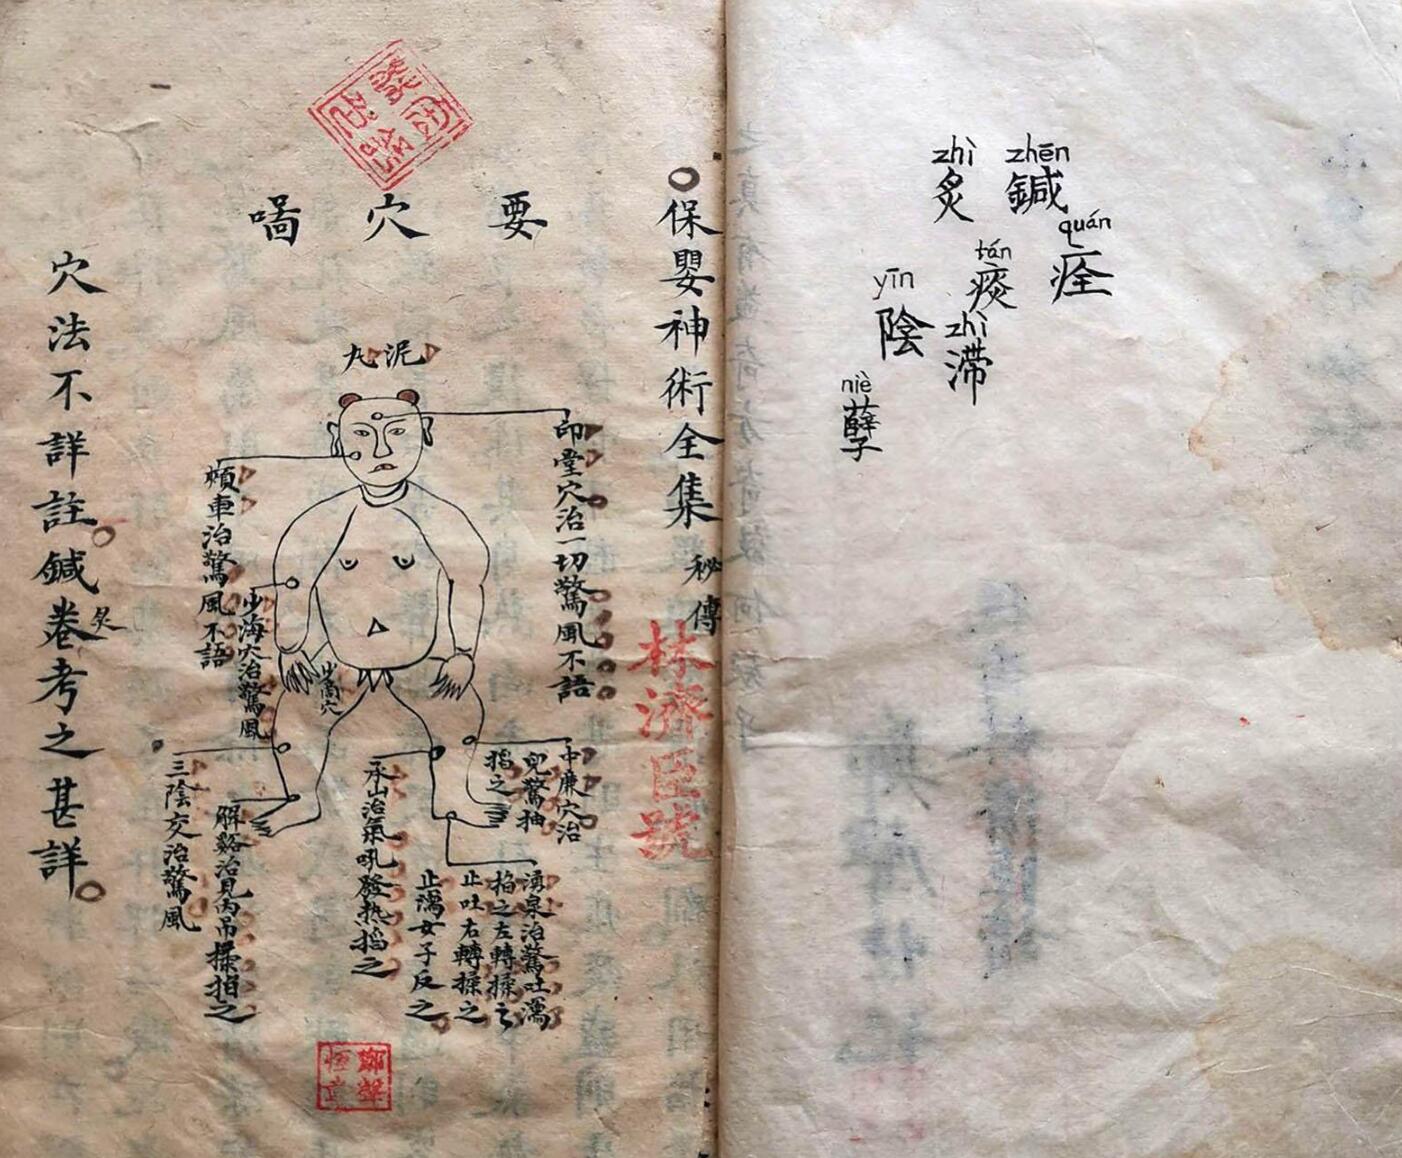 zhēn zhì
鍼 炙
quán
痊
tán
痰
zhì
滞
yīn
陰
niè
孽
保嬰神術全集 秘傳
林濟臣號
要穴啚
泥丸
印堂穴治一切驚風不語
頰車治驚風不語
少海穴治驚風
中廉穴治
兒驚抽
掐之
湧泉治驚吐瀉
掐之左轉揉之
止吐右轉揉之
止瀉女子反之
承山治氣吼發热掐之
解谿治見丙吊揉掐之
三陰交治驚風
穴法不詳註鍼炙卷考之甚詳